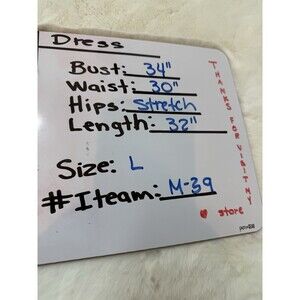 Dress
Bust: 34"
Waist: 30"
Hips: Stretch
Length: 32"
Size: L
#Iteam: M-39
THANKS FOR VISIT MY
♥ store